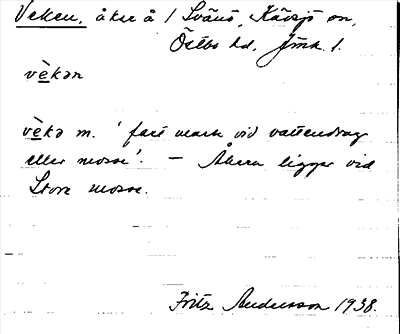 Veken, åker å 1 Svänö, Kävsjö sn,
Östbo hd, Jmk. l.
vèkən
vèkə m. 'fast mark vid vattendrag
eller mosse'. — Åkern ligger vid
Store mosse.
Fritz Andersson 1938.